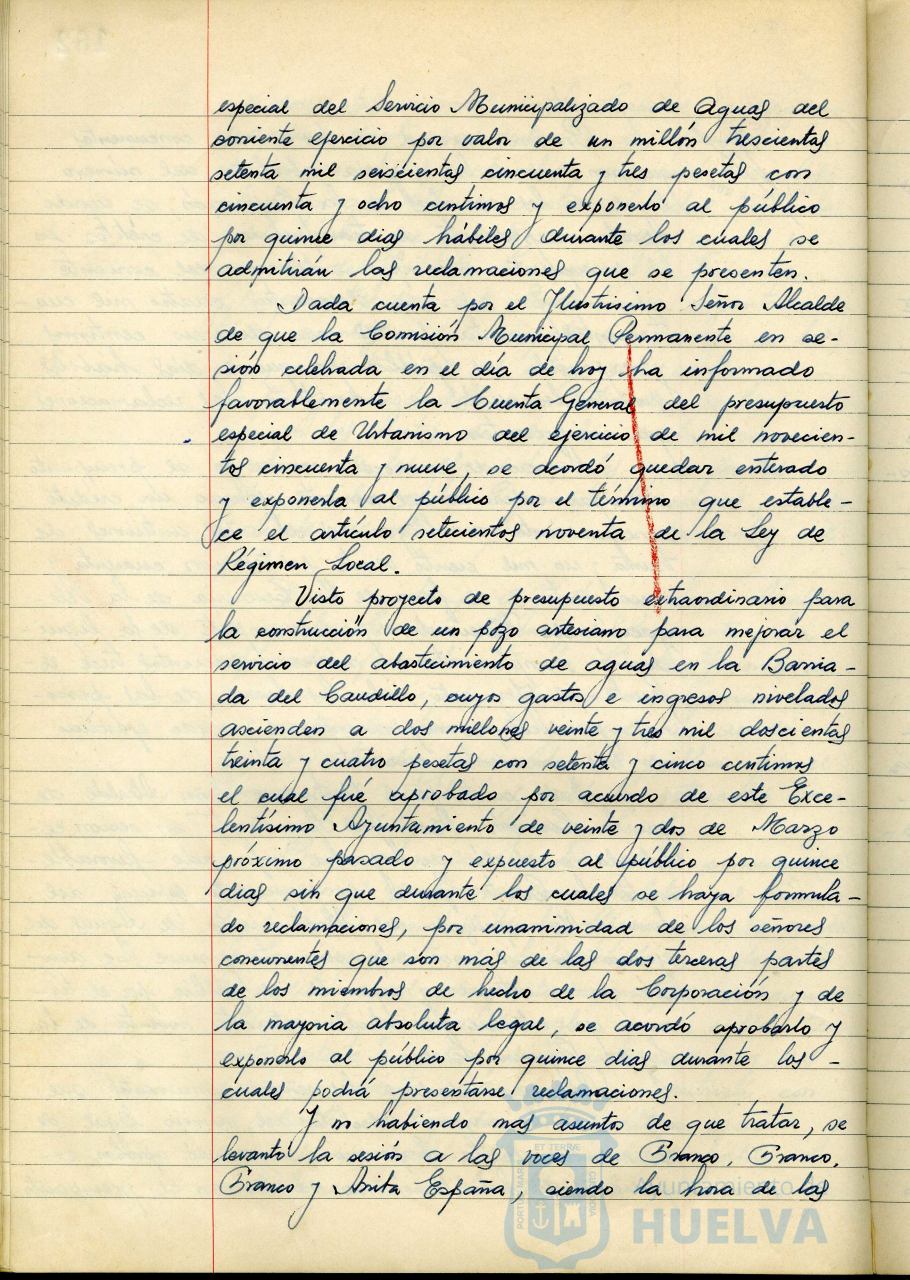 especial del Servicio Municipalizado de Aguas del
corriente ejercicio por valor de un millón trescientas
setenta mil seiscientas cincuenta y tres pesetas con
cincuenta y ocho centimos y exponerlo al público
por quince dias hábiles durante los cuales se
admitirán las reclamaciones que se presenten.
Dada cuenta por el Ilustrisimo Señor Alcalde
de que la Comisión Municipal Permanente en se-
sión celebrada en el día de hoy ha informado
favorablemente la Cuenta General del presupuesto
especial de Urbanismo del ejercicio de mil novecien-
tos cincuenta y nueve, se acordó quedar enterado
y exponerla al público por el término que estable-
ce el artículo setecientos noventa de la Ley de
Régimen Local.
Visto proyecto de presupuesto extraordinario para
la construcción de un pozo artesiano para mejorar el
servicio del abastecimiento de aguas en la Barria-
da del Caudillo, cuyos gastos e ingresos nivelados
ascienden a dos millones veinte y tres mil doscientas
treinta y cuatro pesetas con setenta y cinco centimos
el cual fué aprobado por acuerdo de este Exce-
lentísimo Ayuntamiento de veinte y dos de Marzo
próximo pasado y expuesto al público por quince
dias sin que durante los cuales se haya formula-
do reclamaciones, por unanimidad de los señores
concurrentes que son más de las dos terceras partes
de los miembros de hecho de la Corporación y de
la mayoria absoluta legal, se acordó aprobarlo y
exponerlo al público por quince dias durante los -
cuales podrá presentarse reclamaciones.
Y no habiendo mas asuntos de que tratar, se
levantó la sesión a las voces de Franco, Franco,
Franco y Arriba España, siendo la hora de las
PORTUS MARIS ET TERRE CUSTODIA
Ayuntamiento de
HUELVA